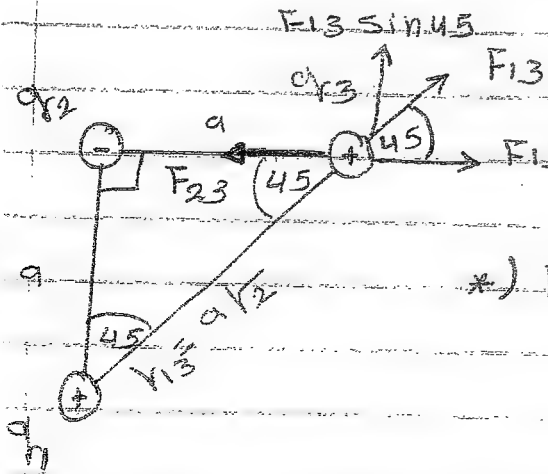 F13 sin45
q3
F13
q2
a
-
+
45
F1
F23
45
a
a√2
*)
45
r13
+
q1